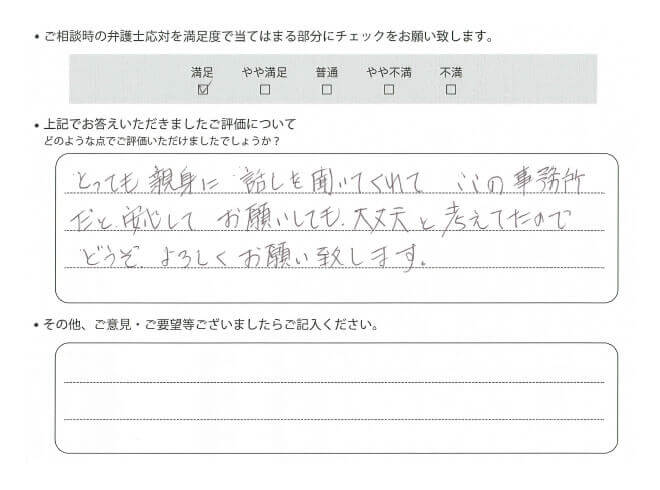 • ご相談時の弁護士応対を満足度で当てはまる部分にチェックをお願い致します。
満足 やや満足 普通 やや不満 不満
☑ □ □ □ □
• 上記でお答えいただきましたご評価について
どのような点でご評価いただけましたでしょうか？
とっても 親身に 話しを聞いてくれて ここの事務所
だと、安心して お願いしても、大丈夫と考えてたので
どうぞ、よろしくお願い致します。
• その他、ご意見・ご要望等ございましたらご記入ください。